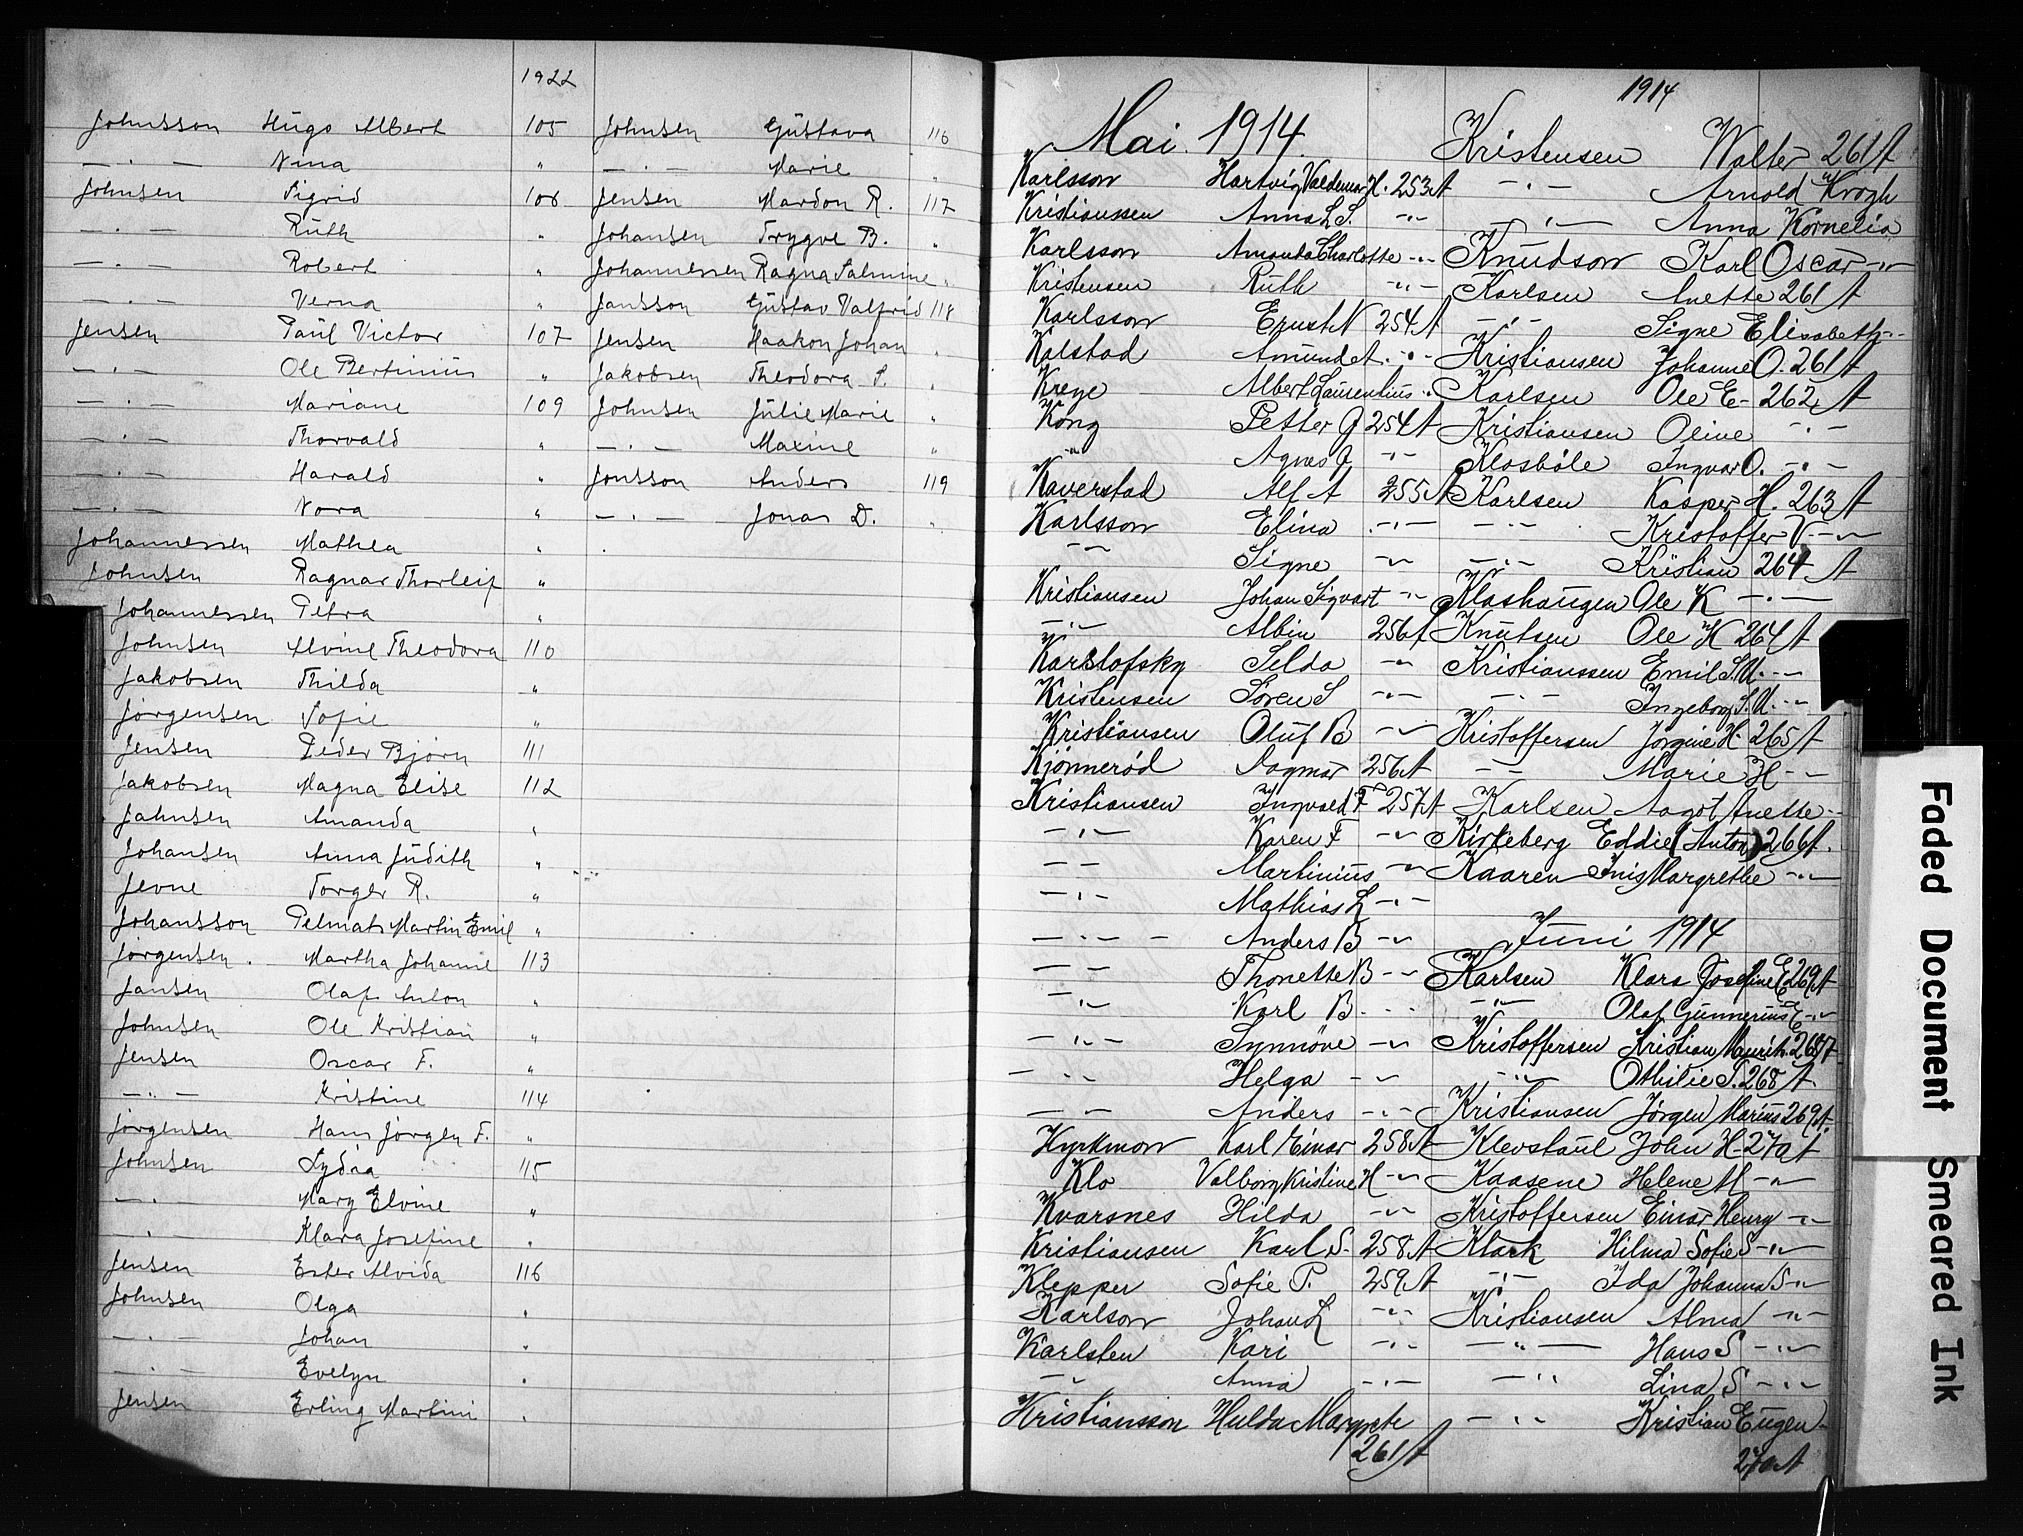 1922
Johnsson Hugo Albert 105
— . — Nina "
Johnsen Sigrid 106
— . — Ruth "
— . — Robert "
— . — Verna "
Jensen Paul Victor 107
— . — Ole Bertinius "
— . — Mariane 109
— . — Thorvald "
— . — Harald "
— . — Nora "
Johannessen Mathea "
Johnsen Ragnar Thorleif "
Johannessen Petra "
Johnsen Alvine Theodora 110
Jakobsen Thilda "
Jørgensen Sofie "
Jensen Peder Bjørn 111
Jakobsen Magna Elise 112
Jahnsen Amanda "
Johansen Anna Judith "
Jevne Torger R. "
Johansson Martin Emil "
Jørgensen. Martha Johanne 113
Jansen Olaf Anton "
Johnsen Ole Kristian "
Jensen Oscar F. "
— " — Kristine 114
Jørgensen Hans Jørgen F. "
Johnsen Lydia 115
— . Mary Elvine "
— . Klara Josefine "
Jensen Ester Alvida 116
Johnsen Olga "
— . — Johan "
— . — Evelyn "
Jensen Erling Martini "
Johnsen Gustava 116
— . — Marie "
Jensen Mardon R. 117
Johansen Trygve B. "
Johannessen Ragna Palmine "
Jansson Gustav Valfrid 118
Jensen Haakon Johan "
Jakobsen Theodora S. "
Johnsen Julie Marie "
— . — Maxine "
Jonsson Anders 119
— . — Jonas D. "
Mai 1914.
Karlsson Hartvig Valdemar H. 253 A
Kristianssen Anna L S. -"-
Karlsson Amanda Charlotte -"-
Kristensen Ruth -"-
Karlsson Ernst N 254 A
Kalstad Amund A. -"-
Krege Albert Laurentius -"-
Kong Petter J 254 A
" Agnes J -"-
Kaverstad Alf A 255 A
Karlsson Elina -"-
-"- Signe -"-
Kristiansen Johan Sigvart -"-
-"- Albin 256 A
Karslofsky Selda -"-
Kristensen Søren S -"-
Kristiansen Oluf B -"-
Kjønnerød Dagmar 256 A
Kristiansen Ingvald F 257 A
-"- Karen F -"-
-"- Martinius -"-
-"- Mathias L -"-
-"- Anders B -"-
-"- Thonette B -"-
-"- Karl B -"-
-"- Synnøve -"-
-"- Helga -"-
-"- Anders -"-
Kyrkmon Karl Einar 258 A
Klo Valborg Kristine H -"-
Kvarsnes Hilda -"-
Kristiansen Karl S. 258 A
Klepper Sofie P. 259 A
Karlson Johan L -"-
Karlsten Kari -"-
-"- Anna -"-
Kristiansson Hulda Margrete
261 A
1914
Kristensen Walter 261 A
-"- Arnold Krogh "
-"- Anna Kornelia
Knudson Karl Oscar -"-
Karlsen Anette 261 A
-"- Signe Elisabeth -"-
Kristiansen Johanne O. 261 A
Karlsen Ole E- 262 A
Kristiansen Olive -"-
Klosbøle Ingvar O. -"-
Karlsen Kasper H. 263 A
-"- Kristoffer V. -"-
-"- Kristian 264 A
Klashaugen Ole K -"-
Knutsen Ole K 264 A
Kristianssen Emil S.U. -"-
-"- Ingeborg S.U. -"-
Kristoffersen Jørgine H. 265 A
-"- Marie H -"-
Karlsen Aagot Anette -"-
Kirkeberg Eddie (Anton) 266 A.
Kaaren Inis Margrethe -"-
Juni 1914
Karlsen Klara Josefine E 269 A
-"- Olaf Gunnerius E -"-
Kristoffersen Kristian Mauritz 268 A
-"- Othilie S. 268 A
Kristiansen Jørgen Marius 269 A.
Klevstaul John H- 270 A
Kaasene Helene M -"-
Kristoffersen Einar Henry -"-
Klark Hilma Sofie S -"-
-"- Ida Johanna S -"-
Kristiansen Alma -"-
-"- Hans S -"-
-"- Lina S -"-
-"- Kristian Eugen -
270 A
Faded Document
Smeared Ink